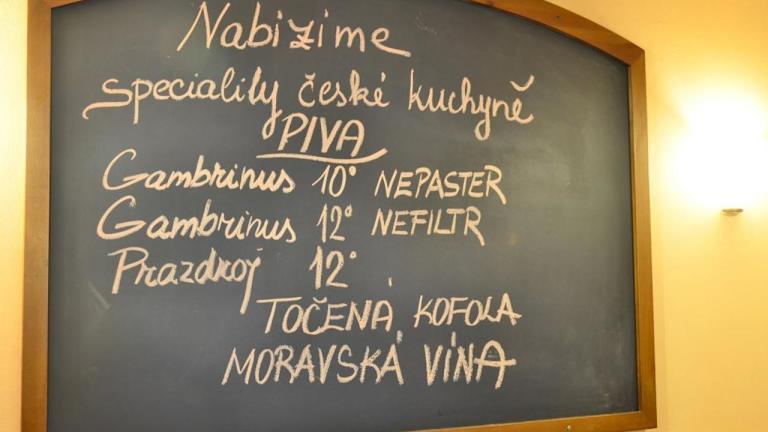 Nabízíme
speciality české kuchyně
PIVA
Gambrinus 10° NEPASTER
Gambrinus 12° NEFILTR
Prazdroj 12°
TOČENÁ KOFOLA
MORAVSKÁ VÍNA